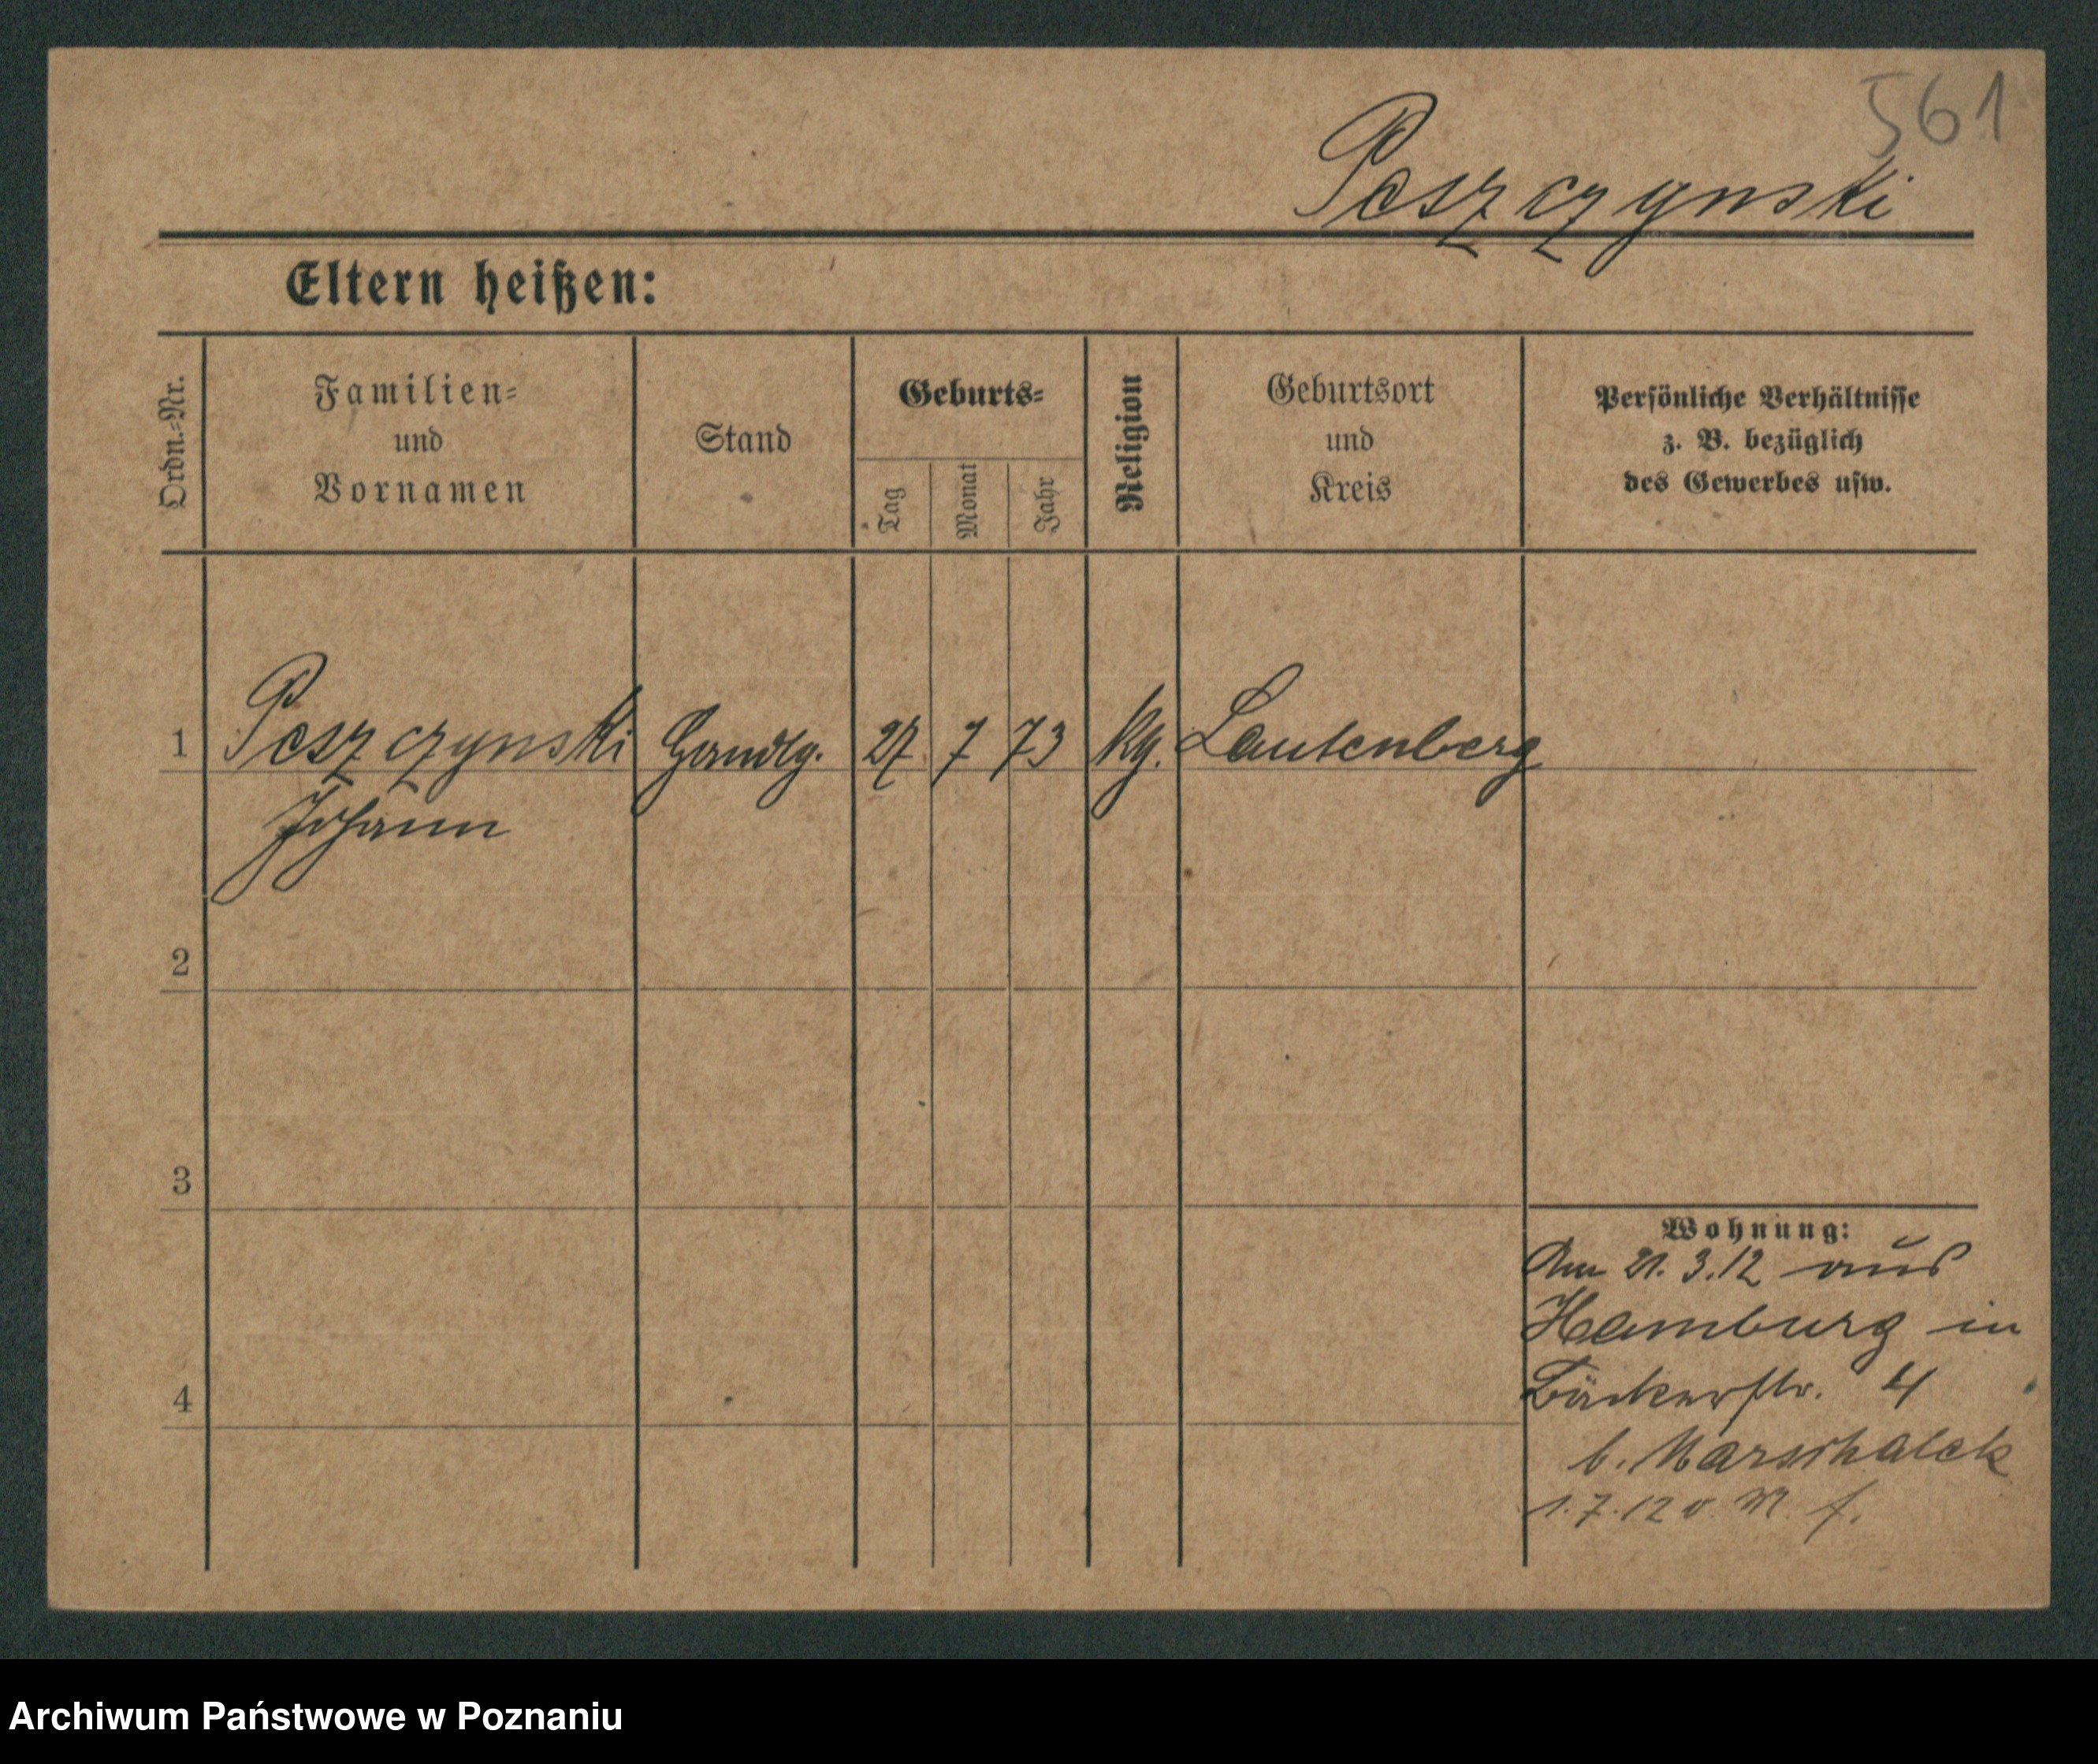 561
Peszczynski
Eltern heißen:
Ordn.-Nr.
Familien-
und
Vornamen
Stand
Geburts-
Tag
Monat
Jahr
Religion
Geburtsort
und
Kreis
Persönliche Verhältnisse
z. B. bezüglich
des Gewerbes usw.
1 Peszczynski Handlg. 27 7 73 kg. Lautenberg
Johann
2
3
4
Wohnung:
Am 21.3.12 aus
Hamburg in
Bäckerstr. 4
b. Marschalek
1.7.12 v. M. f.
Archiwum Państwowe w Poznaniu